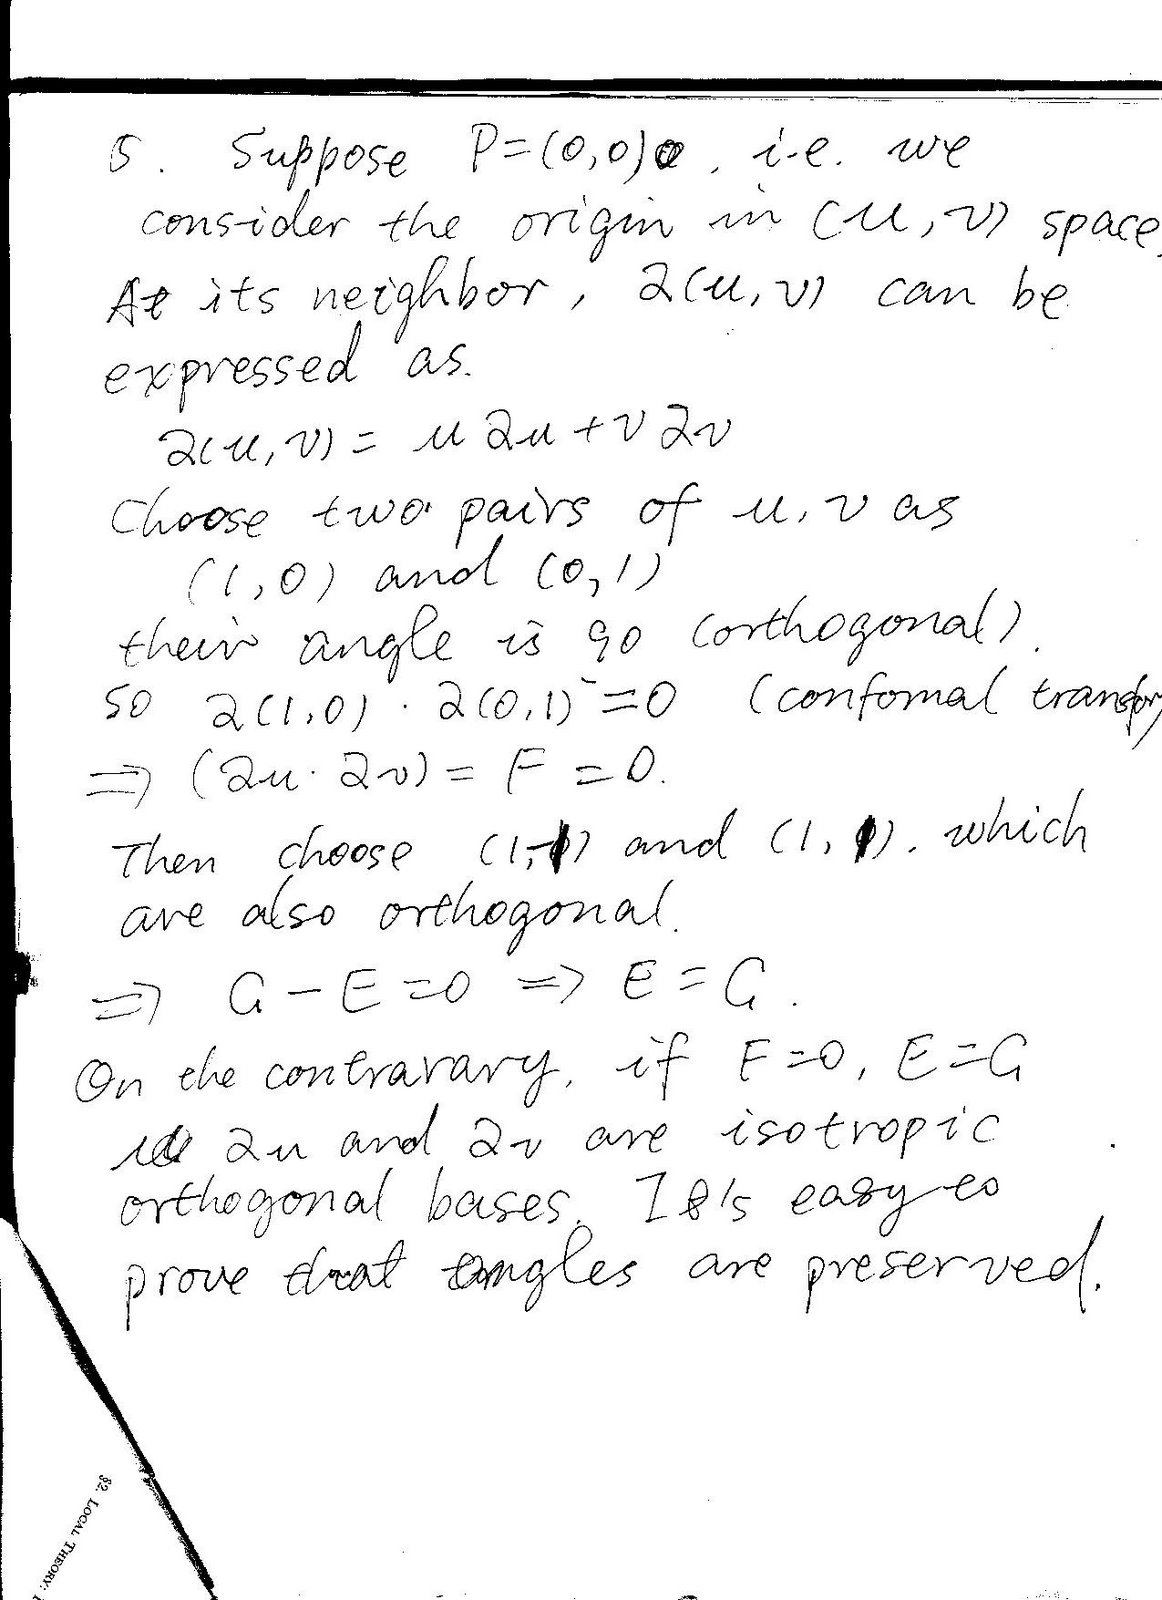 5. Suppose P=(0,0), i.e. we
consider the origin in (u,v) space.
At its neighbor, 2(u,v) can be
expressed as.
2(u,v) = u 2u + v 2v
Choose two pairs of u, v as
(1,0) and (0,1)
their angle is 90 (orthogonal).
so 2(1,0) · 2(0,1) = 0 (confomal transfor
⇒ (2u · 2v) = F = 0.
Then choose (1,-1) and (1, 1), which
are also orthogonal.
⇒ G - E = 0 ⇒ E = G.
On the contravary, if F=0, E=G
2u and 2v are isotropic
orthogonal bases. It's easy to
prove that angles are preserved.
§2. LOCAL THEORY: